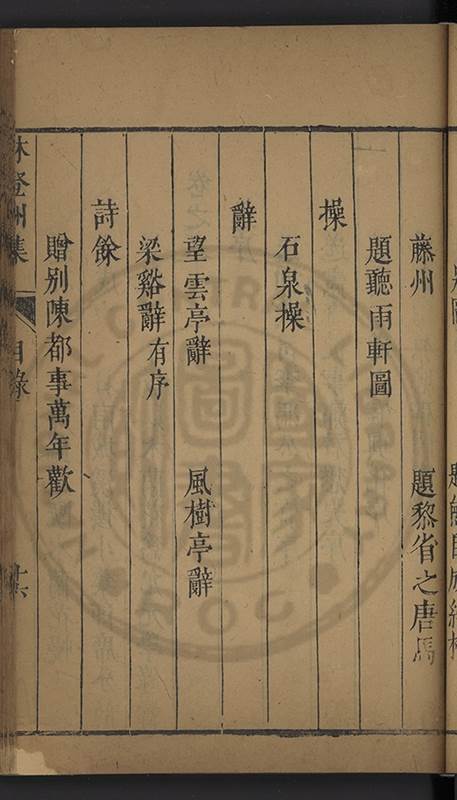 藤州　題黎省之唐馬
題聽雨軒圖
操
石泉操
辭
望雲亭辭　風樹亭辭
梁谿辭有序
詩餘
贈别陳都事萬年歡
林登州集　目錄